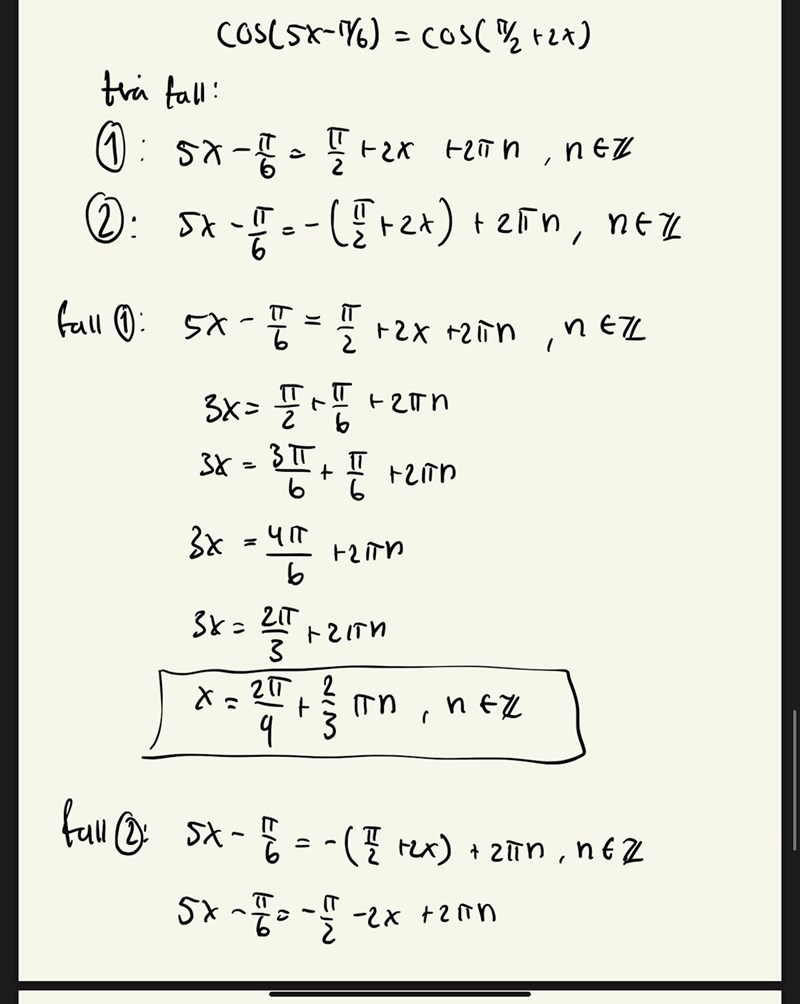 cos(5x-π/6) = cos(π/2 +2x)
två fall:
①: 5x - π/6 = π/2 +2x +2πn , n∈ℤ
②: 5x - π/6 = -(π/2 +2x) + 2πn, n∈ℤ
fall ①: 5x - π/6 = π/2 +2x +2πn , n∈ℤ
3x = π/2 + π/6 +2πn
3x = 3π/6 + π/6 +2πn
3x = 4π/6 +2πn
3x = 2π/3 +2πn
x = 2π/9 + 2/3 πn , n∈ℤ
fall ②: 5x - π/6 = -(π/2 +2x) + 2πn , n∈ℤ
5x - π/6 = -π/2 -2x +2πn